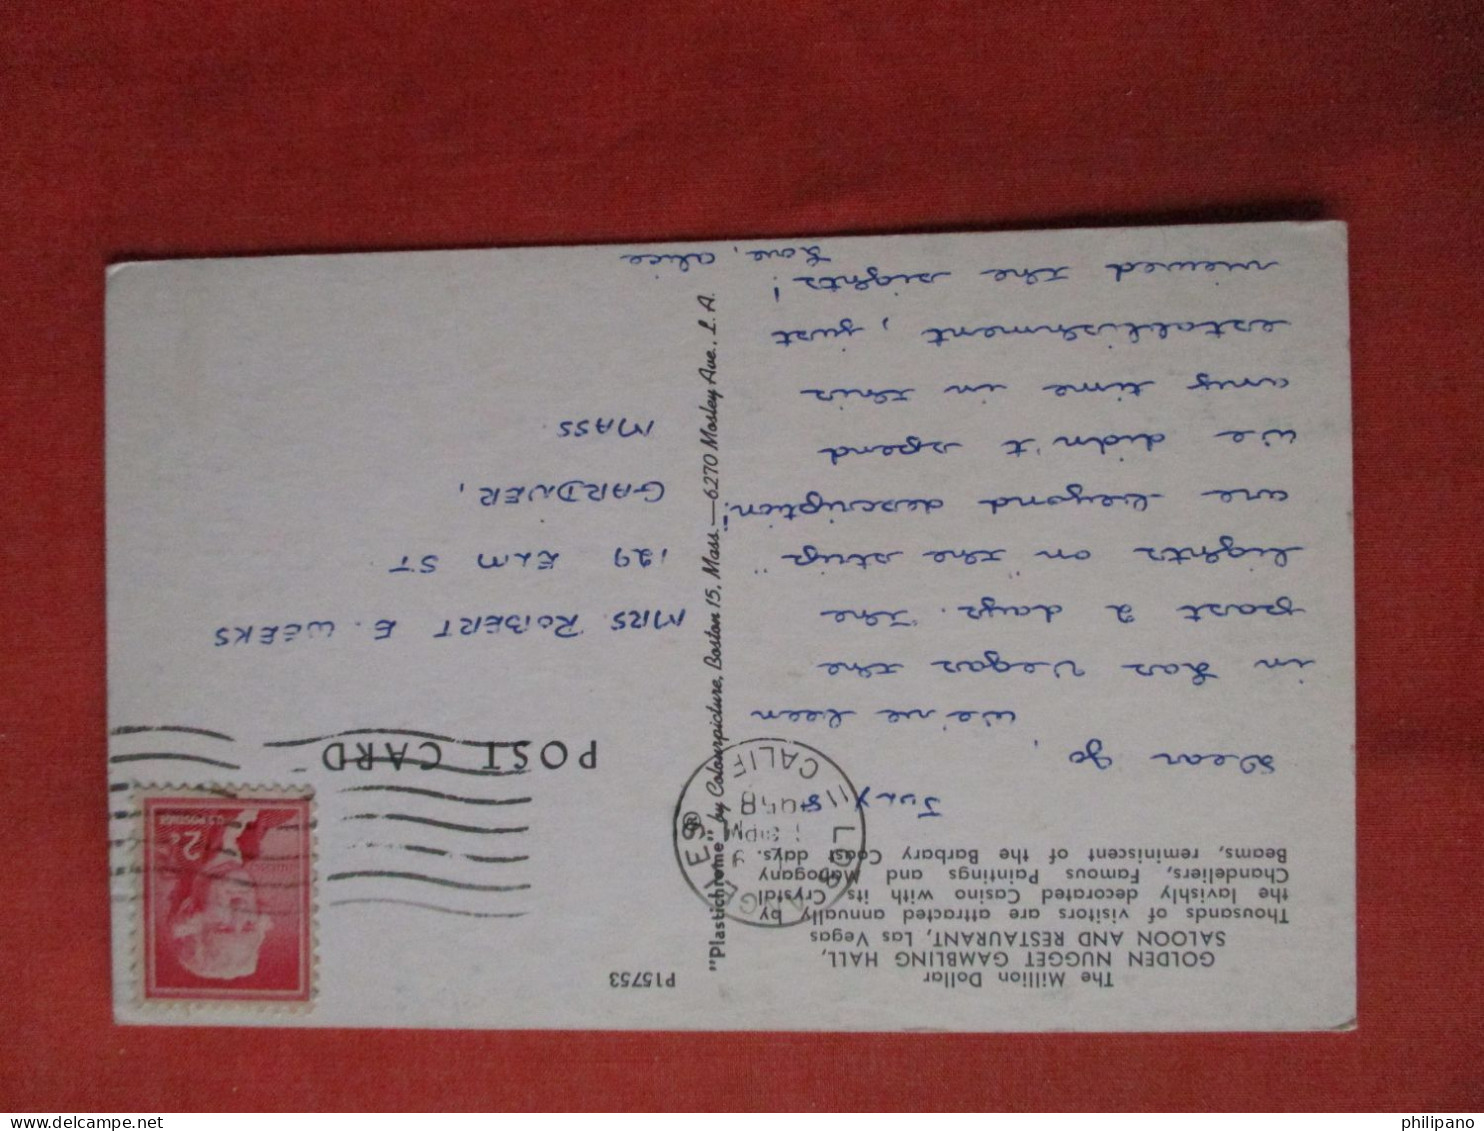 The Million Dollar
GOLDEN NUGGET GAMBLING HALL,
SALOON AND RESTAURANT, Las Vegas
Thousands of visitors are attracted annually by
the lavishly decorated Casino with its Crystal
Chandeliers, Famous Paintings and Mahogany
Beams, reminiscent of the Barbary Coast days.
JULY
Dear Jo,
We've been
in Las Vegas the
past 2 days. The
lights on "the strip"
are beyond description.
We didn't spend
any time in this
establishment, just
viewed the sights!
Love, Alice
P15753
"Plastichrome" ® by Colourpicture, Boston 15, Mass.—6270 Mosley Ave., L.A.
LOS ANGELES
PM
1958
CALIF
2¢
U.S. POSTAGE
POST CARD
MRS. ROBERT E. WEEKS
129 ELM ST
GARDNER,
MASS.
philipano